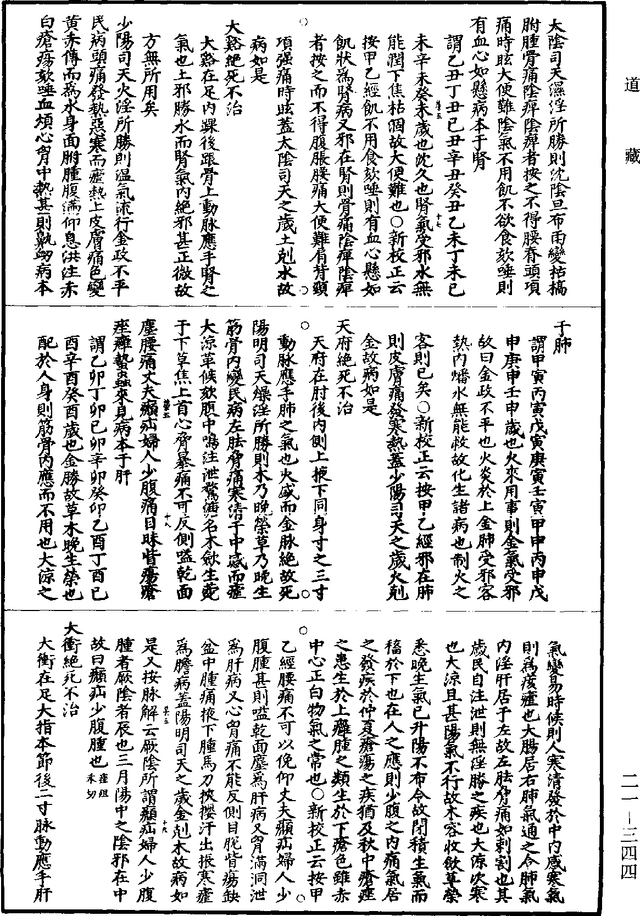 道藏
太陰司天濕淫所勝則沈陰且布雨變枯槁
胕腫骨痛陰痺陰痺者按之不得腰脊頭項
痛時眩大便難陰氣不用飢不欲食欬唾則
有血心如懸病本于腎
謂乙丑丁丑己丑辛丑癸丑乙未丁未己
未辛未癸未歲也沈久也腎氣受邪水無
能潤下焦枯涸故大便難也○新校正云
按甲乙經飢不用食欬唾則有血心懸如
飢狀爲腎病又邪在腎則骨痛陰痺陰痺
者按之而不得腹脹腰痛大便難肩背頸
項強痛時眩蓋太陰司天之歲土剋水故
病如是
大谿絕死不治
大谿在足內踝後跟骨上動脉應手腎之
氣也土邪勝水而腎氣內絕邪甚正微故
方無所用矣
少陽司天火淫所勝則溫氣流行金政不平
民病頭痛發熱惡寒而瘧熱上皮膚痛色變
黃赤傳而爲水身面胕腫腹滿仰息泄注赤
白瘡瘍欬唾血煩心胷中熱甚則鼽衂病本
于肺
謂甲寅丙寅戊寅庚寅壬寅甲申丙申戊
申庚申壬申歲也火來用事則金氣受邪
故曰金政不平也火炎於上金肺受邪客
熱內燔水無能救故化生諸病也制火之
客則已矣○新校正云按甲乙經邪在肺
則皮膚痛發寒熱蓋少陽司天之歲火剋
金故病如是
天府絕死不治
天府在肘後內側上掖下同身寸之三寸
動脉應手肺之氣也火盛而金脉絕故死
陽明司天燥淫所勝則木乃晚榮草乃晚生
筋骨內變民病左胠脅痛寒清于中感而瘧
大涼革候欬腹中鳴注泄鶩溏名木斂生菀
于下草焦上首心脅暴痛不可反側嗌乾面
塵腰痛丈夫㿗疝婦人少腹痛目昧眥瘍瘡
痤癰蟄蟲來見病本于肝
謂乙卯丁卯己卯辛卯癸卯乙酉丁酉己
酉辛酉癸酉歲也金勝故草木晚生榮也
配於人身則筋骨內應而不用也大涼之
氣變易時候則人寒清發於中內感寒氣
則爲痎瘧也大腸居右肺氣通之今肺氣
內淫肝居于左故左胠脅痛如刺割也其
歲民自注泄則無淫勝之疾也大涼次寒
也大涼且甚陽氣不行故木容收斂草榮
悉晚生氣已升陽不布令故閉積生氣而
稸於下也在人之應則少腹之內痛氣居
之發疾於仲夏瘡瘍之疾猶及秋中瘡痤
之患生於上癰腫之類生於下瘡色雖赤
中心正白物氣之常也○新校正云按甲
乙經腰痛不可以俛仰丈夫㿗疝婦人少
腹腫甚則嗌乾面塵爲肝病又胷滿洞泄
爲肝病又心脅痛不能反側目銳眥瘍缺
盆中腫痛掖下腫馬刀挾癭汗出振寒瘧
爲膽病蓋陽明司天之歲金剋木故病如
是又按脉解云厥陰所謂㿗疝婦人少腹
腫者厥陰者辰也三月陽中之陰邪在中
故曰㿗疝少腹腫也
大衝絕死不治
大衝在足大指本節後二寸脉動應手肝
二一－三四四